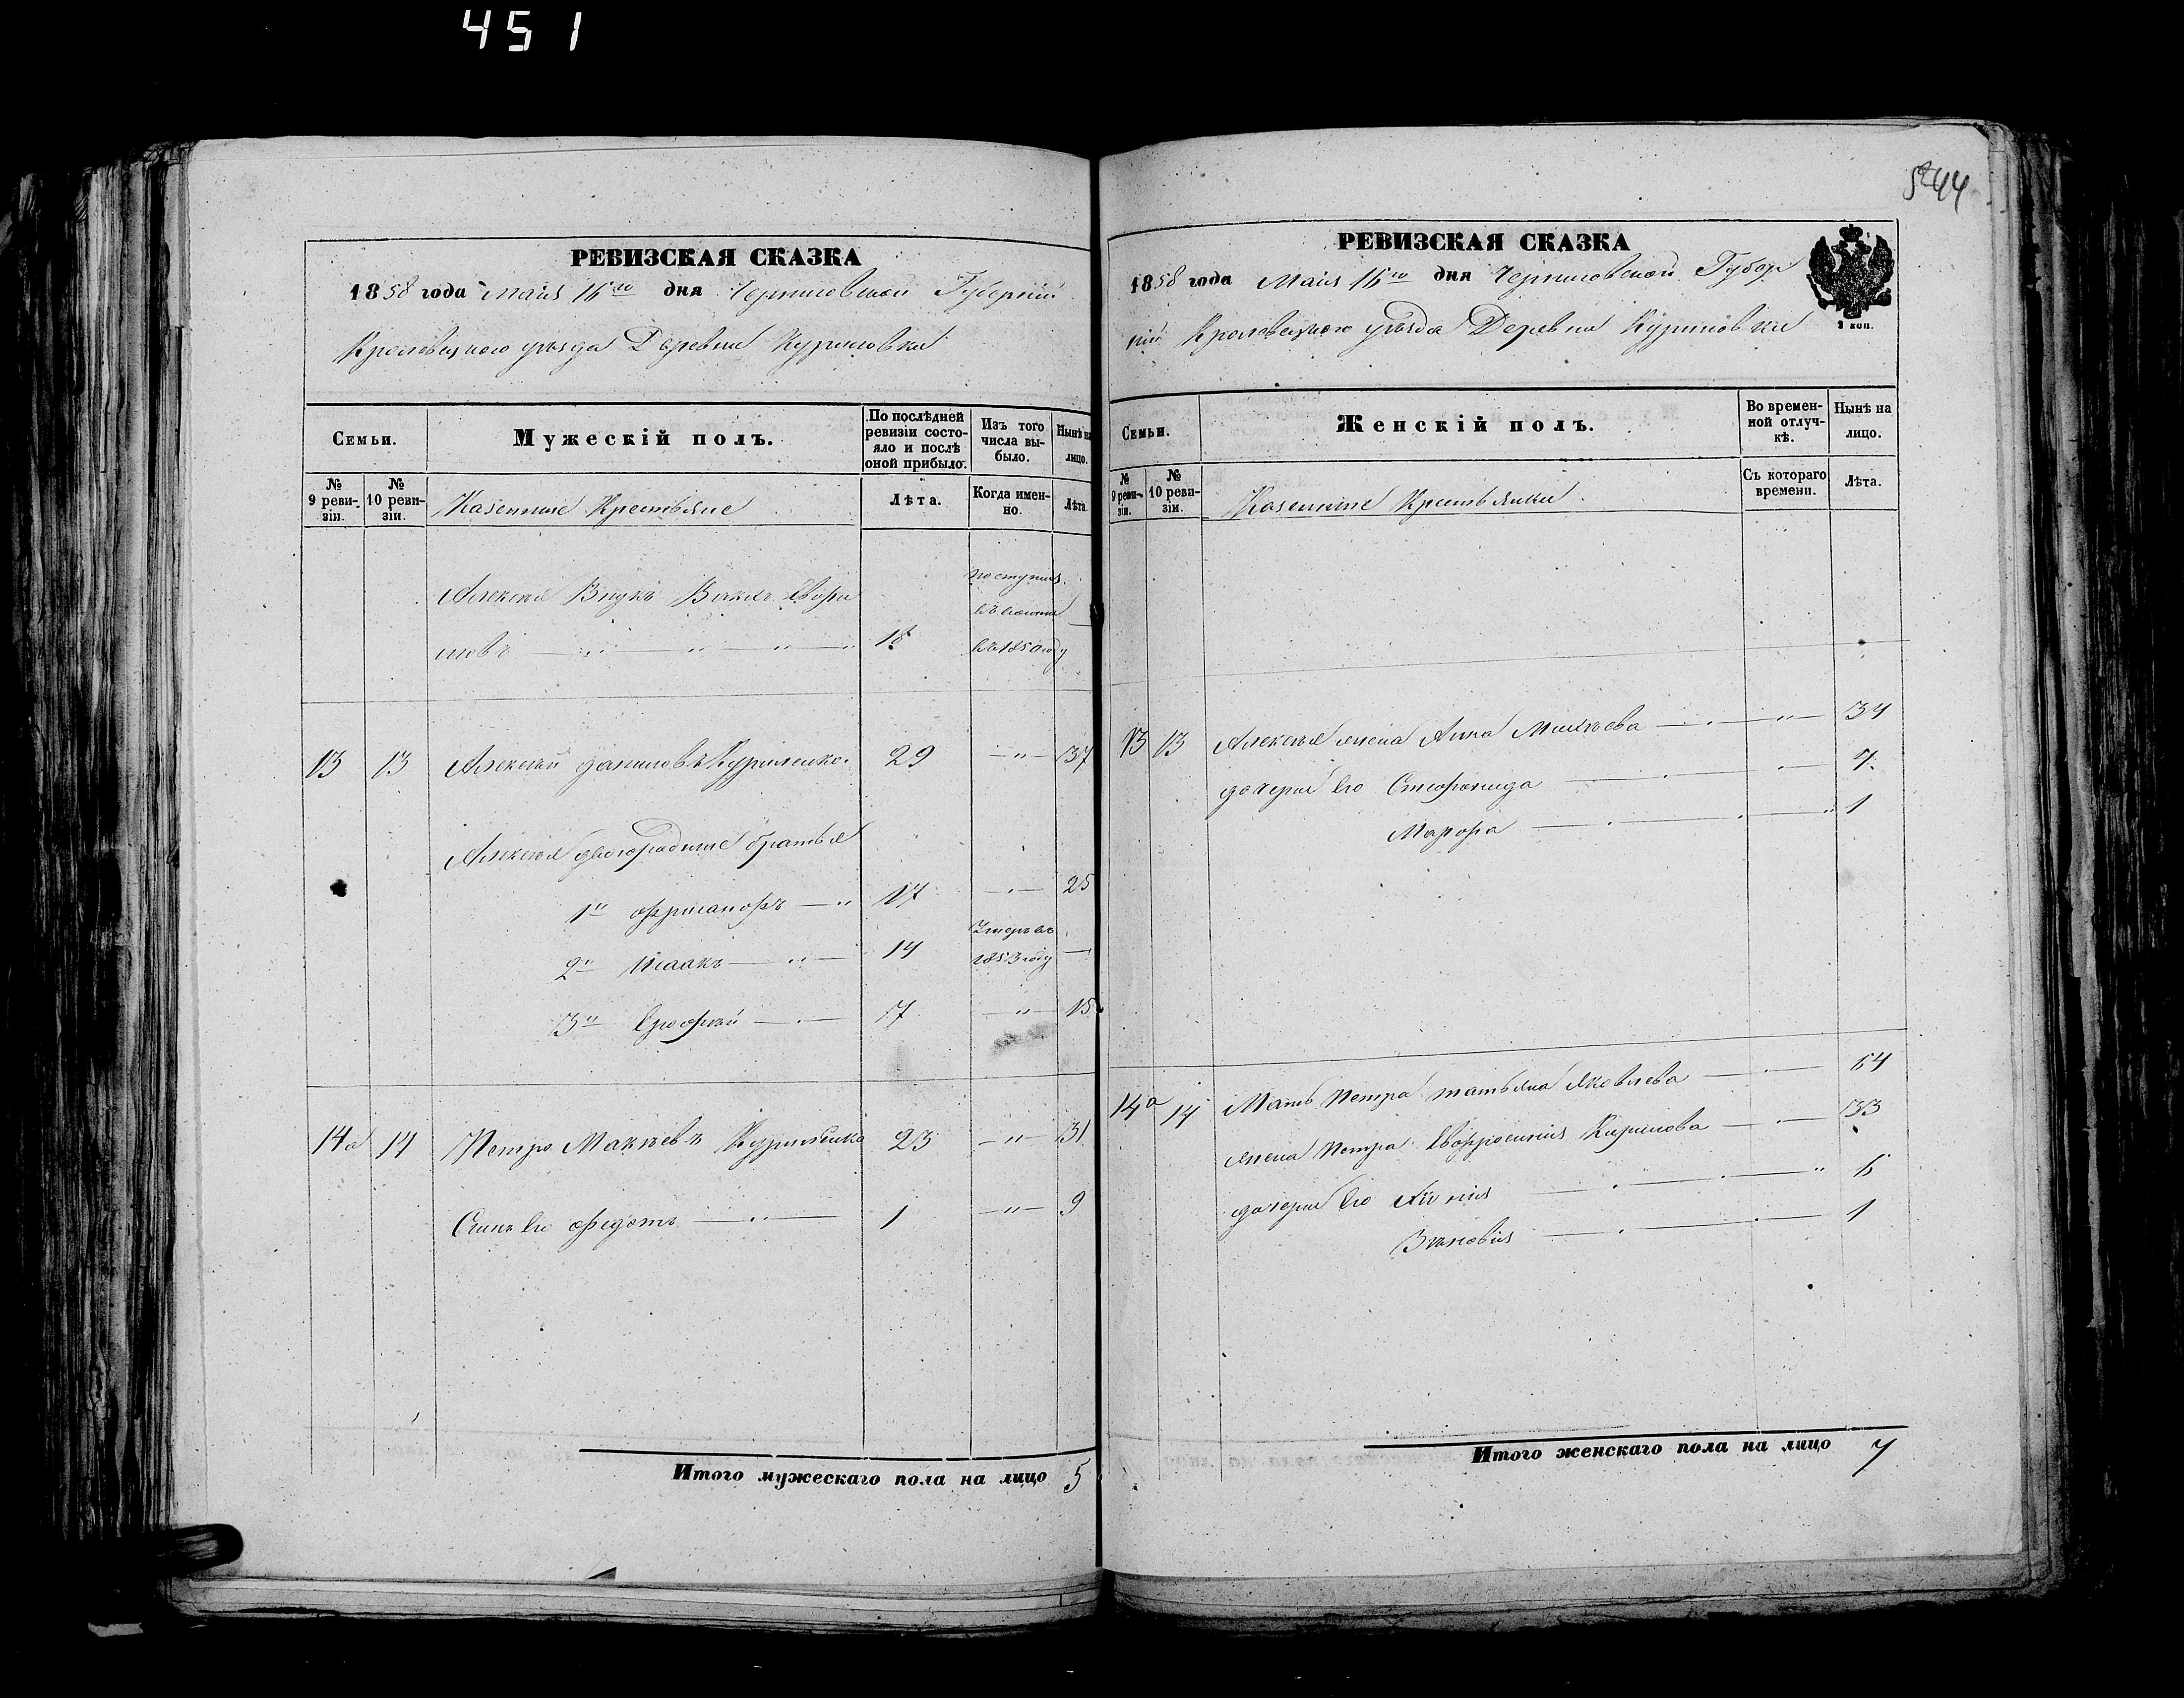 451
5244
РЕВИЗСКАЯ СКАЗКА
1858 года Маія 15го дня Черниговской Губерніи
Кролевецкого уѣзда Деревни Куриловки
Семьи.
Мужескій полъ.
По послѣдней ревизіи состояло и послѣ оной прибыло.
Изъ того числа выбыло.
Нынѣ на лицо.
№ 9 ревизіи.
№ 10 ревизіи.
Казенные Крестьяне
Лѣта.
Когда именно.
Лѣта.
Алексея Внукъ
18
въ 1850 году
13 13 Алексѣй Даниловъ Куриленко 29 — 37
Алексея двоюродные братья
1й 17 — 25
2й Исаакъ — 14 Умеръ въ 1853 году —
3й Ерофѣй — 7 — 15
14а 14 Петро Макѣевъ Куриленко 23 — 31
Сынъ Его Федотъ — 1 — 9
Итого мужескаго пола на лицо 5
РЕВИЗСКАЯ СКАЗКА
1858 года Маія 15го дня Черниговской Губер
ніи Кролевецкого уѣзда Деревни Куриловки
2 коп.
Семьи.
Женскій полъ.
Во временной отлучкѣ.
Нынѣ на лицо.
№ 9 ревизіи.
№ 10 ревизіи.
Казенные Крестьянки
Съ котораго времени.
Лѣта.
13 13 Алексея жена Анна — 34
дочери Его Стефанида — 7
Марфа — 1
14а 14 Мать Петра Татьяна Яковлева — 54
жена Петра Евфросинія Кирилова — 33
дочери Его — 5
Зиновія — 1
Итого женскаго пола на лицо 7